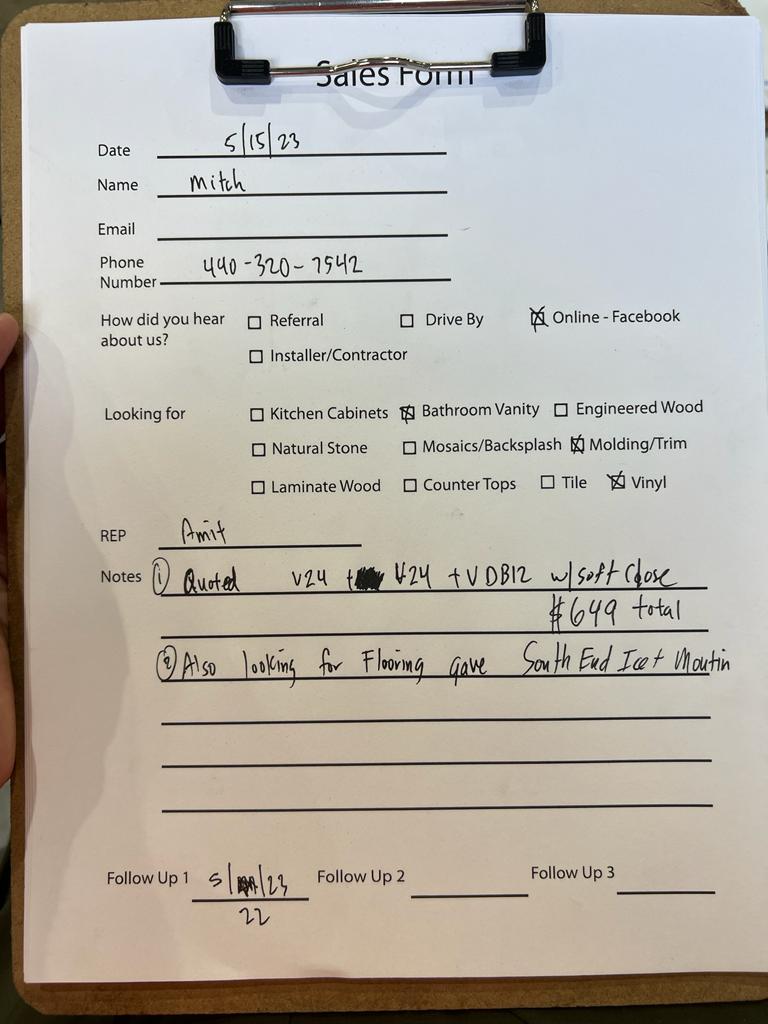 Sales Form
Date 5/15/23
Name Mitch
Email
Phone Number 440-320-7542
How did you hear about us? ☐ Referral ☐ Drive By ☒ Online - Facebook
☐ Installer/Contractor
Looking for ☐ Kitchen Cabinets ☒ Bathroom Vanity ☐ Engineered Wood
☐ Natural Stone ☐ Mosaics/Backsplash ☒ Molding/Trim
☐ Laminate Wood ☐ Counter Tops ☐ Tile ☒ Vinyl
REP Amit
Notes ① Quoted V24 + V24 + VDB12 w/ soft close
$649 total
② Also looking for Flooring gave South End Ice + Moutin
Follow Up 1 5/ /23 Follow Up 2 Follow Up 3
22